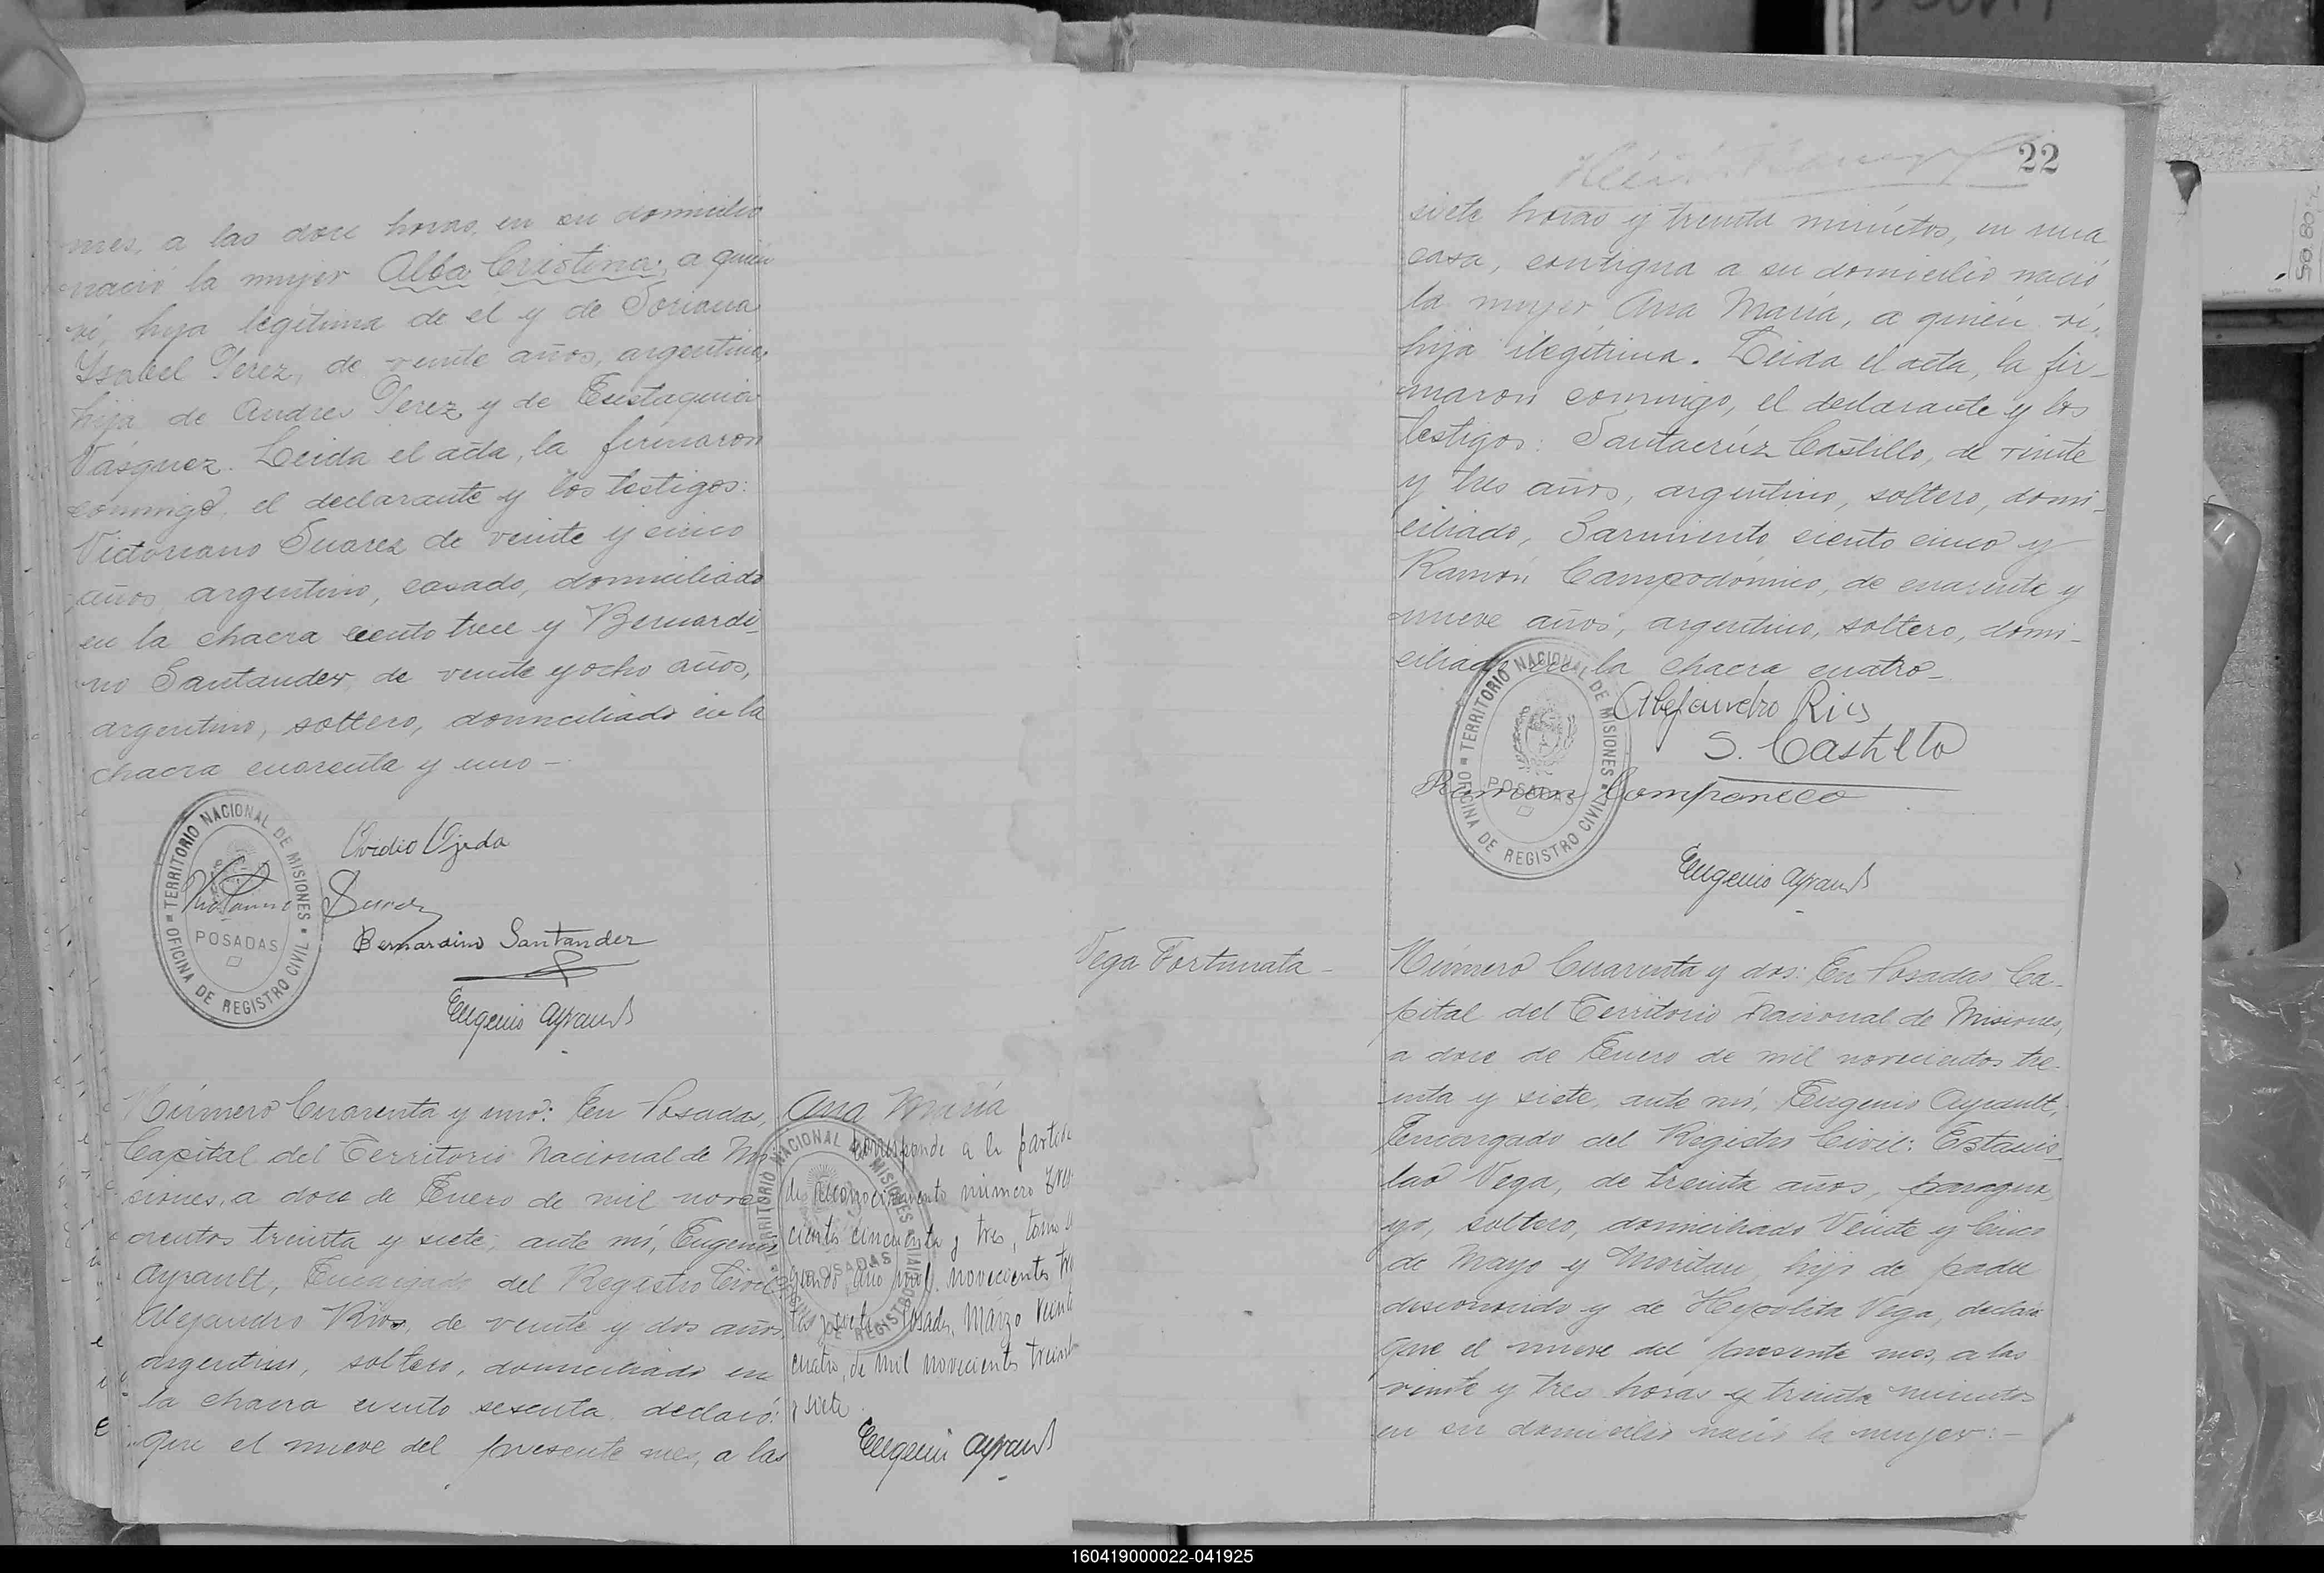 mes, a las doce horas, en su domicilio
nació la mujer Alba Cristina, a quién
ví, hija legítima de el y de Soriana
Ysabel Perez, de veinte años, argentina,
hija de Andres Perez y de Eustaquia
Vásquez. Leida el acta, la firmaron
conmigo, el declarante y los testigos:
Victoriano Suarez de veinte y cinco
años, argentino, casado, domiciliado
en la chacra ciento trece y Bernardi-
no Santander, de veinte y ocho años,
argentino, soltero, domiciliado en la
chacra cuarenta y uno-
TERRITORIO NACIONAL DE MISIONES
OFICINA DE REGISTRO CIVIL
POSADAS
Ovidio Ojeda
Suarez
Bernardino Santander
Eugenio Ayrault
Número Cuarenta y uno: En Posadas,
Capital del Territorio Nacional de Mi-
siones, a doce de Enero de mil nove-
cientos treinta y siete, ante mí, Eugenio
Ayrault, Encargado del Registro Civil:
Alejandro Rios, de veinte y dos años,
argentino, soltero, domiciliado en
la chacra ciento sesenta, declaró:
que el nueve del presente mes, a las
Ana María
corresponde a la partida
de reconocimiento número tres-
cientos cincuenta y tres, tomo se-
gundo año mil novecientos trein-
ta y siete. Posadas, Marzo veinti
cuatro, de mil novecientos treinta
y siete.
Eugenio Ayrault
TERRITORIO NACIONAL DE MISIONES
OFICINA DE REGISTRO CIVIL
POSADAS
22
siete horas y treinta minutos, en una
casa, contigua a su domicilio nació
la mujer Ana María, a quién ví,
hija ilegítima. Leida el acta, la fir-
maron conmigo, el declarante y los
testigos: Santacrúz Castillo, de veinte
y tres años, argentino, soltero, domi-
ciliado, Sarmiento ciento cinco y
Ramón Campodómico, de cuarenta y
nueve años, argentino, soltero, domi-
ciliado en la chacra cuatro-
TERRITORIO NACIONAL DE MISIONES
OFICINA DE REGISTRO CIVIL
POSADAS
Alejandro Rios
S. Castillo
Ramon Camponico
Eugenio Ayrault
Vega Fortunata-
Número Cuarenta y dos: En Posadas Ca-
pital del Territorio Nacional de Misiones,
a doce de Enero de mil novecientos tre-
inta y siete, ante mí, Eugenio Ayrault,
Encargado del Registro Civil: Estanis-
lao Vega, de treinta años, paragua-
yo, soltero, domiciliado Veinte y Cinco
de Mayo y Moritan, hijo de padre
desconocido y de Hypolita Vega, declaró
que el nueve del presente mes, a las
veinte y tres horas y treinta minutos
en su domicilio nació la mujer:-
160419000022-041925